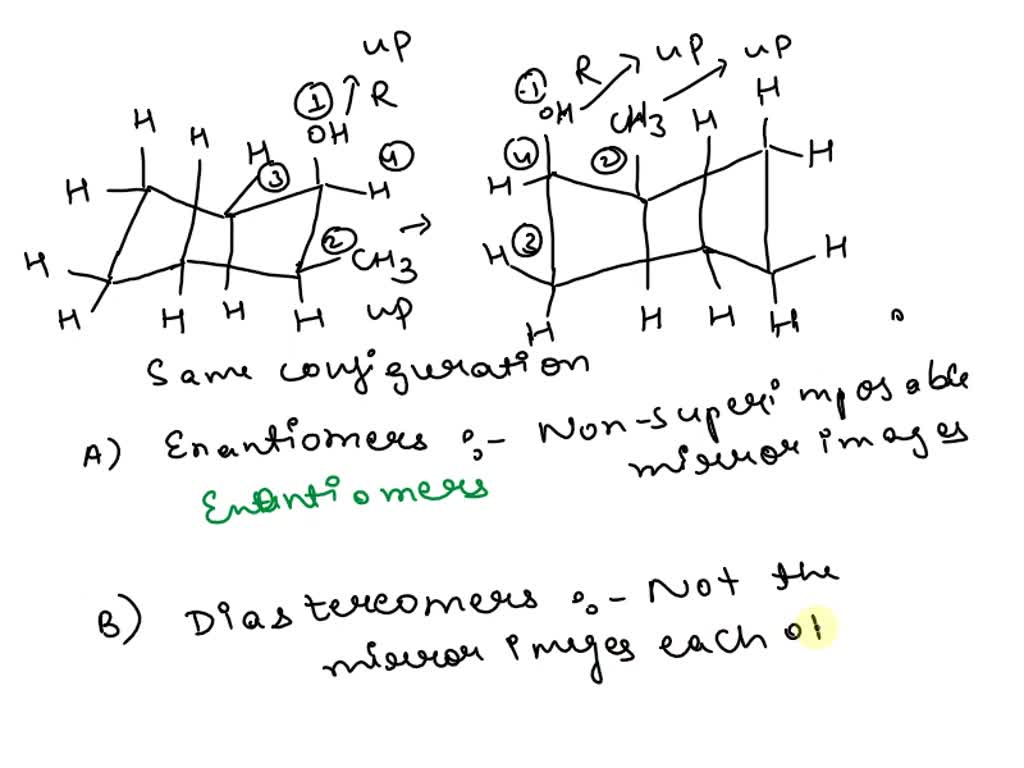 up up up
① R ① R H
H H H OH ④ OH CH3 H
③ ④ ② H
H H H
② CH3 H ③ H
H
H H H H up H H H H
Same configuration
A) Enantiomers :- Non-superimposable
mirror images
Enantiomers
B) Diastereomers :- Not the
mirror images each ot